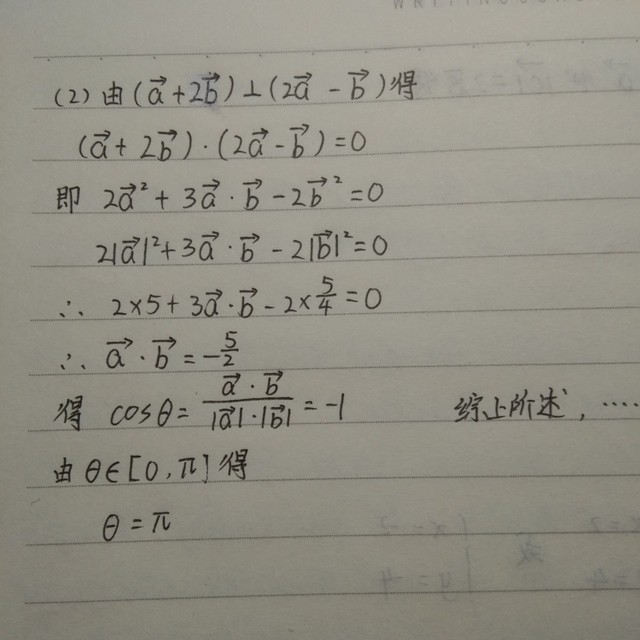 (2) 由(a⃗+2b⃗)⊥(2a⃗-b⃗)得
(a⃗+2b⃗)·(2a⃗-b⃗)=0
即 2a⃗²+3a⃗·b⃗-2b⃗²=0
2|a⃗|²+3a⃗·b⃗-2|b⃗|²=0
∴ 2×5+3a⃗·b⃗-2×5/4=0
∴ a⃗·b⃗=-5/2
得 cosθ=a⃗·b⃗/|a⃗|·|b⃗|=-1 综上所述,……
由θ∈[0,π]得
θ=π